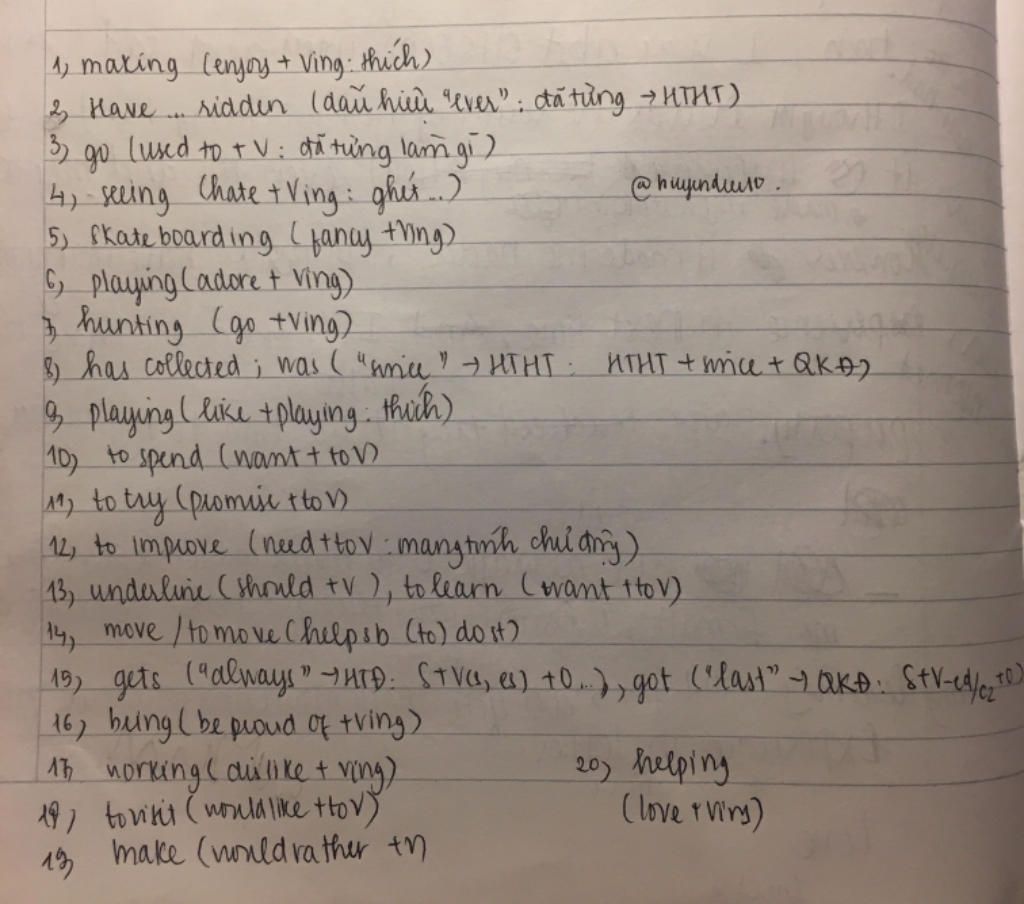 1, making (enjoy + Ving: thích)
2, Have ... ridden (dấu hiệu "ever": đã từng → HTHT)
3, go (used to + V: đã từng làm gì)
4, seeing (hate + Ving: ghét...)
@huyendieu10.
5, skateboarding (fancy + Ving)
6, playing (adore + Ving)
7, hunting (go + Ving)
8, has collected; was ("since" → HTHT: HTHT + since + QKĐ)
9, playing (like + playing: thích)
10, to spend (want + toV)
11, to try (promise + toV)
12, to improve (need + toV: mang tính chủ động)
13, underline (should + V), to learn (want + toV)
14, move / to move (help sb (to) do st)
15, gets ("always" → HTĐ: S+V(s, es) + O...), got ("last" → QKĐ: S+V-ed/c2 +O)
16, being (be proud of + Ving)
17, working (dislike + Ving)
20, helping
(love + Ving)
to visit (would like + toV)
19, make (would rather + V)